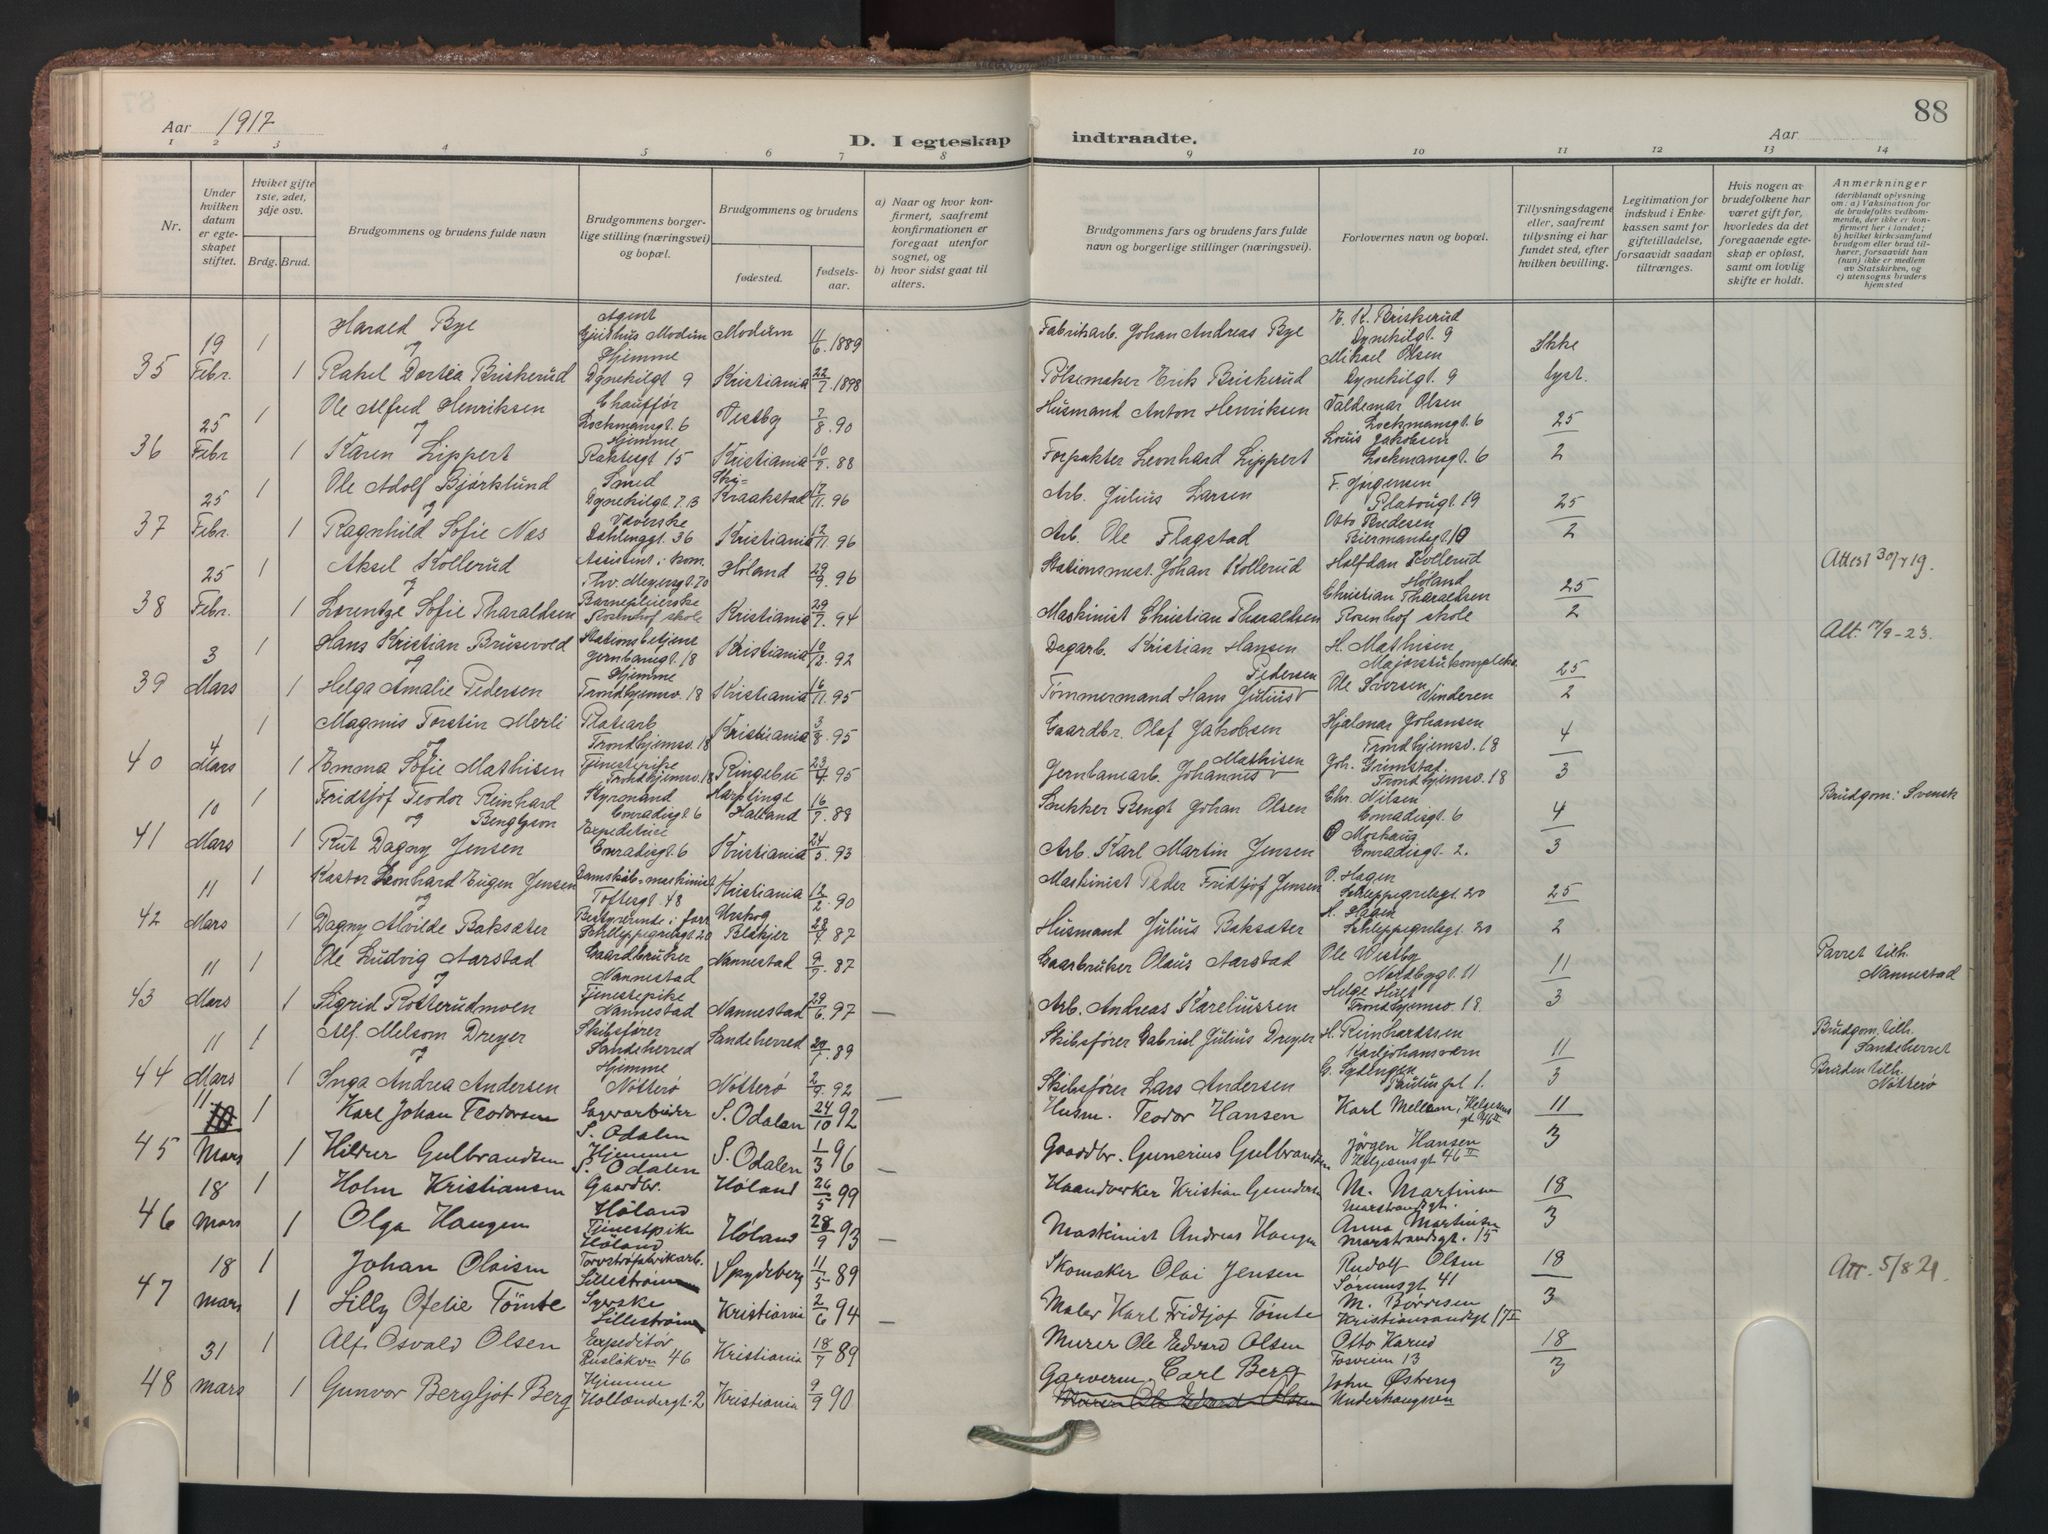 88
Aar 1917
D. Iegteskap indtraadte.
Aar
1 2 3 4 5 6 7 8 9 10 11 12 13 14
Nr.
Under hvilken datum er egteskapet stiftet.
Hviket gifte 1ste, 2det, 3dje osv.
Brdg. Brud.
Brudgommens og brudens fulde navn
Brudgommens borgerlige stilling (næringsvei) og bopæl.
Brudgommens og brudens
fødested.
fødselsaar.
a) Naar og hvor konfirmert, saafremt konfirmationen er foregaat utenfor sognet, og
b) hvor sidst gaat til alters.
Brudgommens fars og brudens fars fulde navn og borgerlige stillinger (næringsvei).
Forlovernes navn og bopæl.
Tillysningsdagene eller, saafremt tillysning ei har fundet sted, efter hvilken bevilling.
Legitimation for indskud i Enkekassen samt for giftetilladelse, forsaavidt saadan tiltrænges.
Hvis nogen av brudefolkene har været gift før, hvorledes da det foregaaende egteskap er opløst, samt om lovlig skifte er holdt.
Anmerkninger
(deriblandt oplysning om: a) Vaksination for de brudefolks vedkommende, der ikke er konfirmert her i landet; b) hvilket kirkesamfund brudgom eller brud tilhører, forsaavidt han (hun) ikke er medlem av Statskirken, og c) utensogns bruders hjemsted
35 19 Febr. 1 Harald Bye Agent Modum Modum 11/6 1889 Fabrikarb. Johan Andreas Bye E. K. Briskerud Dynekilgt 9 Ikke lyst.
og
1 Rakel Dortea Briskerud Hjemme Dynekilgt 9 Kristiania 22/7 1898 Pølsemaker Erik Briskerud Mikael Olsen Dynekilgt. 9
36 25 Febr 1 Ole Alfred Henriksen Chauffør Lockmansgt. 6 Vestby 7/8 90 Husmand Anton Henriksen Valdemar Olsen Lockmansgt. 6 25/2
og
1 Karen Lippert Hjemme 15 Kristiania 10/7 88 Forpakter Leonhard Lippert Louis Jakobsen Lockmansgt. 6
37 25 Febr. 1 Ole Adolf Bjørklund Smed Dynekilgt. 7. B Ski-Kraakstad 17/11 96 Arb. Julius Larsen F. Jørgensen Platougt. 19 25/2
og
1 Ragnhild Sofie Næs Væverske 36 Kristiania 12/11 96 Arb. Ole Flagstad Otto Bredesen
38 25 Febr. 1 Aksel Kollerud Assistent i kom. Thv. Meyersgt. 70 Høland 29/9 96 Stationsmest. Johan Kollerud Halfdan Kollerud Høland 25/2 Attest 30/7 19.
og
1 Lorentze Sofie Tharaldsen Barnepleierske Rosenhof skole Kristiania 29/7 94 Maskinist Christian Tharaldsen Christian Tharaldsen Rosenhof skole
39 3 Mars 1 Hans Kristian Brusevold Stationsbetjent Jernbanegt. 18 Kristiania 10/12 92 Dagarb. Kristian Hansen H. Mathisen Majorstukompleks. 25/2 Att. 17/9-23.
og
1 Helga Amalie Pedersen Hjemme Trondhjemsv. 18 Kristiania 16/11 95 Tømmermand Hans Julius Pedersen Ole Iversen Vinderen
40 4 Mars 1 Magnus Torstin Merli Platearb Trondhjemsv. 18 Kristiania 3/8 95 Gaardbr. Olaf Jakobsen Hjalmar Johansen Trondhjemsv. 18 4/3
og
1 Emma Sofie Mathisen Tjenestepike Trondhjemsv. 18 Ringebu 23/4 95 Jernbanearb. Johannes Mathisen Joh. Grimstad Trondhjemsv. 18
41 10 Mars 1 Fridtjof Teodor Reinhard Bengtson Styrmand Conradisgt 6 Harplinge Halland 16/7 88 Snekker Bengt Johan Olsen Chr. Nilsen Conradisgt. 6 4/3 Brudgom: Svensk
og
1 Rut Dagny Jensen Expeditrice Conradisgt. 6 Kristiania 24/5 93 Arb. Karl Martin Jensen O Moshaug Conradisgt. 2.
42 11 Mars 1 Kastor Leonhard Eugen Jensen maskinist Toftesgt. 48 Kristiania 12/2 90 Maskinist Peder Fridtjof Jensen O. Hagen Schleppegrelsgt 20 25/2
og
1 Dagny Alvilde Baksæter Bestyrerinde i forr Schleppegrelsgt. 20 Urskog Blakjer 28/9 87 Husmand Julius Baksæter A. Hagen Schleppegrelsgt. 20
43 11 Mars 1 Ole Ludvig Aarstad Gaardbruker Nannestad Nannestad 9/7 87 Gaarbruker Olaus Aarstad Ole Vestby Nordbygt. 11 11/3 Parret tilh. Nannestad
og
1 Sigrid Rotterudmoen Tjenestepike Nannestad Nannestad 29/6 97 — Arb. Andreas Kareliussen Helge Hult Trondhjemsv. 18
44 11 Mars 1 Alf Melsom Dreyer Skibsfører Sandeherred Sandeherred 29/1 89 Skibsfører Gabriel Julius Dreyer H. Reinhardtsen Karljohansværn 11/3 Brudgom. tilh. Sandeherret
og
1 Inga Andrea Andersen Hjemme Nøtterø Nøtterø 2/9 92 — Skibsfører Lars Andersen Paulus pl 1. Bruden tilh. Nøtterø
45 11. 10 Mars 1 Karl Johan Teodorsen Sagarbeider S. Odalen S. Odalen 24/10 92 Husm. Teodor Hansen Karl Mellem, Helgesens gt 46 II 11/3
1 Hildur Gulbrandsen Hjemme S. Odalen S. Odalen 1/3 96 — Gaardbr. Gunerius Gulbrandsen Jørgen Hansen Helgesensgt 46 II
46 18 Mars 1 Holm Kristiansen Gaardbr. Høland Høland 26/5 99 Haandverker Kristian Gundersen M. Martinsen Marstrandgt. 18/3
1 Olga Haugen Tjenestpike Høland Høland 28/9 93 — Maskinist Andreas Haugen Anna Martinsen Marstrandsgt. 15
47 18 Mars 1 Johan Olaisen Torvstrøfabrikarb. Lillestrøm Spydeberg 11/5 89 Skomaker Olai Jensen Rudolf Olsen Sørumsgt 41 18/3 Att. 5/8 21.
1 Lilly Ofelie Tømte Syerske Lillestrøm Kristiania 2/6 94 — Maler Karl Fridtjof Tømte M. Børresen Kristiansandsgt 17 II
48 31 Mars 1 Alf Osvald Olsen Expeditør Ruseløkvn 46 Kristiania 18/7 89 Murer Ole Edvard Olsen Otto Karud Fosveien 13 18/3
1 Gunvor Bergljot Berg Hjemme Hollendergt. 2 Kristiania 9/9 90 Garverm. Carl Berg John Østreng Underhaugsvn
Murer Ole Edvard Olsen